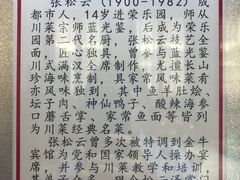 张松云（1900-1982）成
都市人，14岁进荣乐园，师从
川菜宗师蓝光鉴，后成为荣乐
园第二代名厨，张松云技艺全
面，匠心独具，曾参与蓝光鉴
川式满汉全席制作，尤擅长山
珍海味烹制，具家常风味菜肴
亦为风味独到，其中鱼羊肚烩、
坛子肉、神仙鸭子、酸辣海参
口蘑舌掌、家常鱼面等皆列
为川菜经典名菜。
张松云曾多次被特调到金牛
宾馆为党和国家领导人操办宴
席，并参与川菜教学和培训，